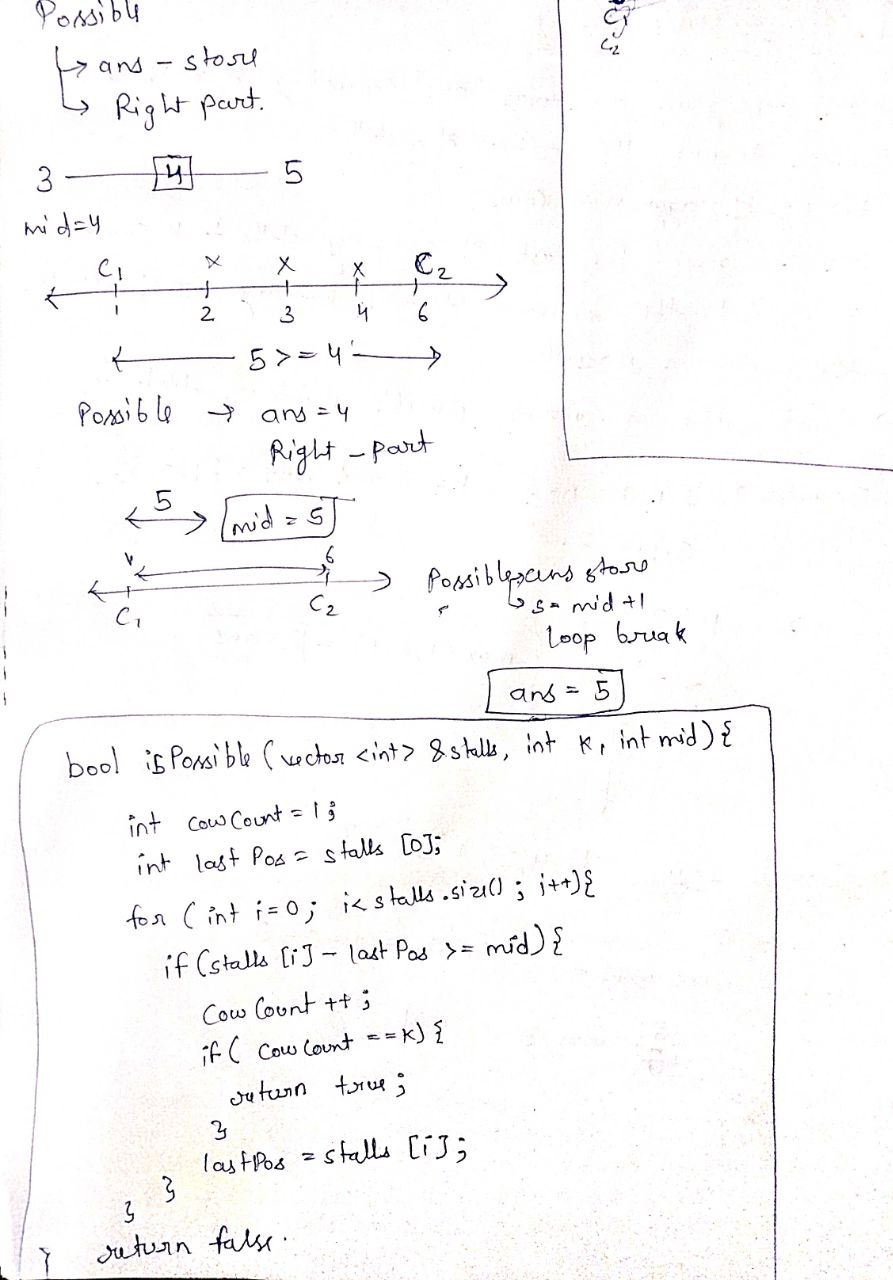 Possible
↳ ans - store
↳ Right part.
C1
C2
3 4 5
mid=4
C1 x x x C2
1 2 3 4 6
5 >= 4
Possible → ans = 4
Right - part
5 mid = 5
1 6
C1 C2
Possible → ans store
↳ s = mid +1
loop break
ans = 5
bool isPossible (vector <int> &stalls, int K, int mid) {
int cowCount = 1;
int last Pos = stalls [0];
for (int i=0; i< stalls.size(); i++){
if (stalls [i] - last Pos >= mid) {
Cow Count ++;
if ( Cow Count ==K) {
return true;
}
lastPos = stalls [i];
}
}
return false.
}